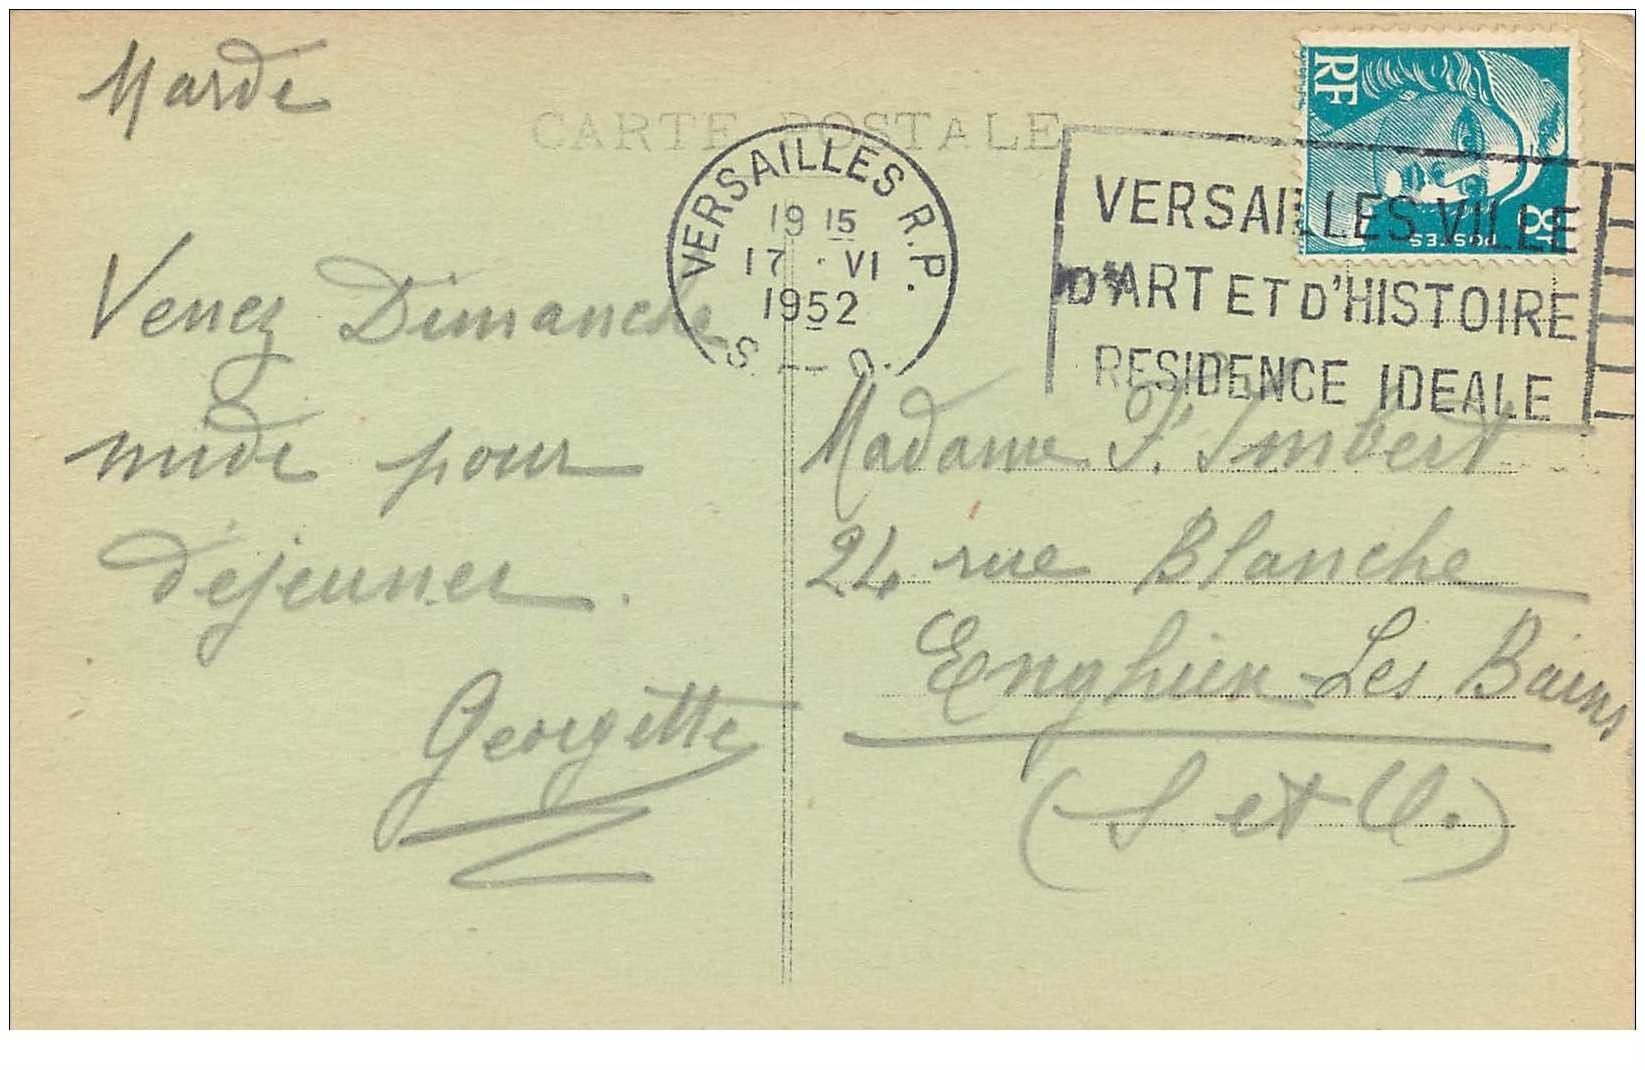 Mardi
CARTE POSTALE
RF
8F
POSTES
VERSAILLES R.P.
19 15
17 · VI
1952
S. — O.
VERSAILLES VILLE
D'ART ET D'HISTOIRE
RESIDENCE IDEALE
Venez Dimanche
midi pour
déjeuner.
Georgette
Madame F. Imbert
24 rue Blanche
Enghien-Les Bains
(S. et O.)